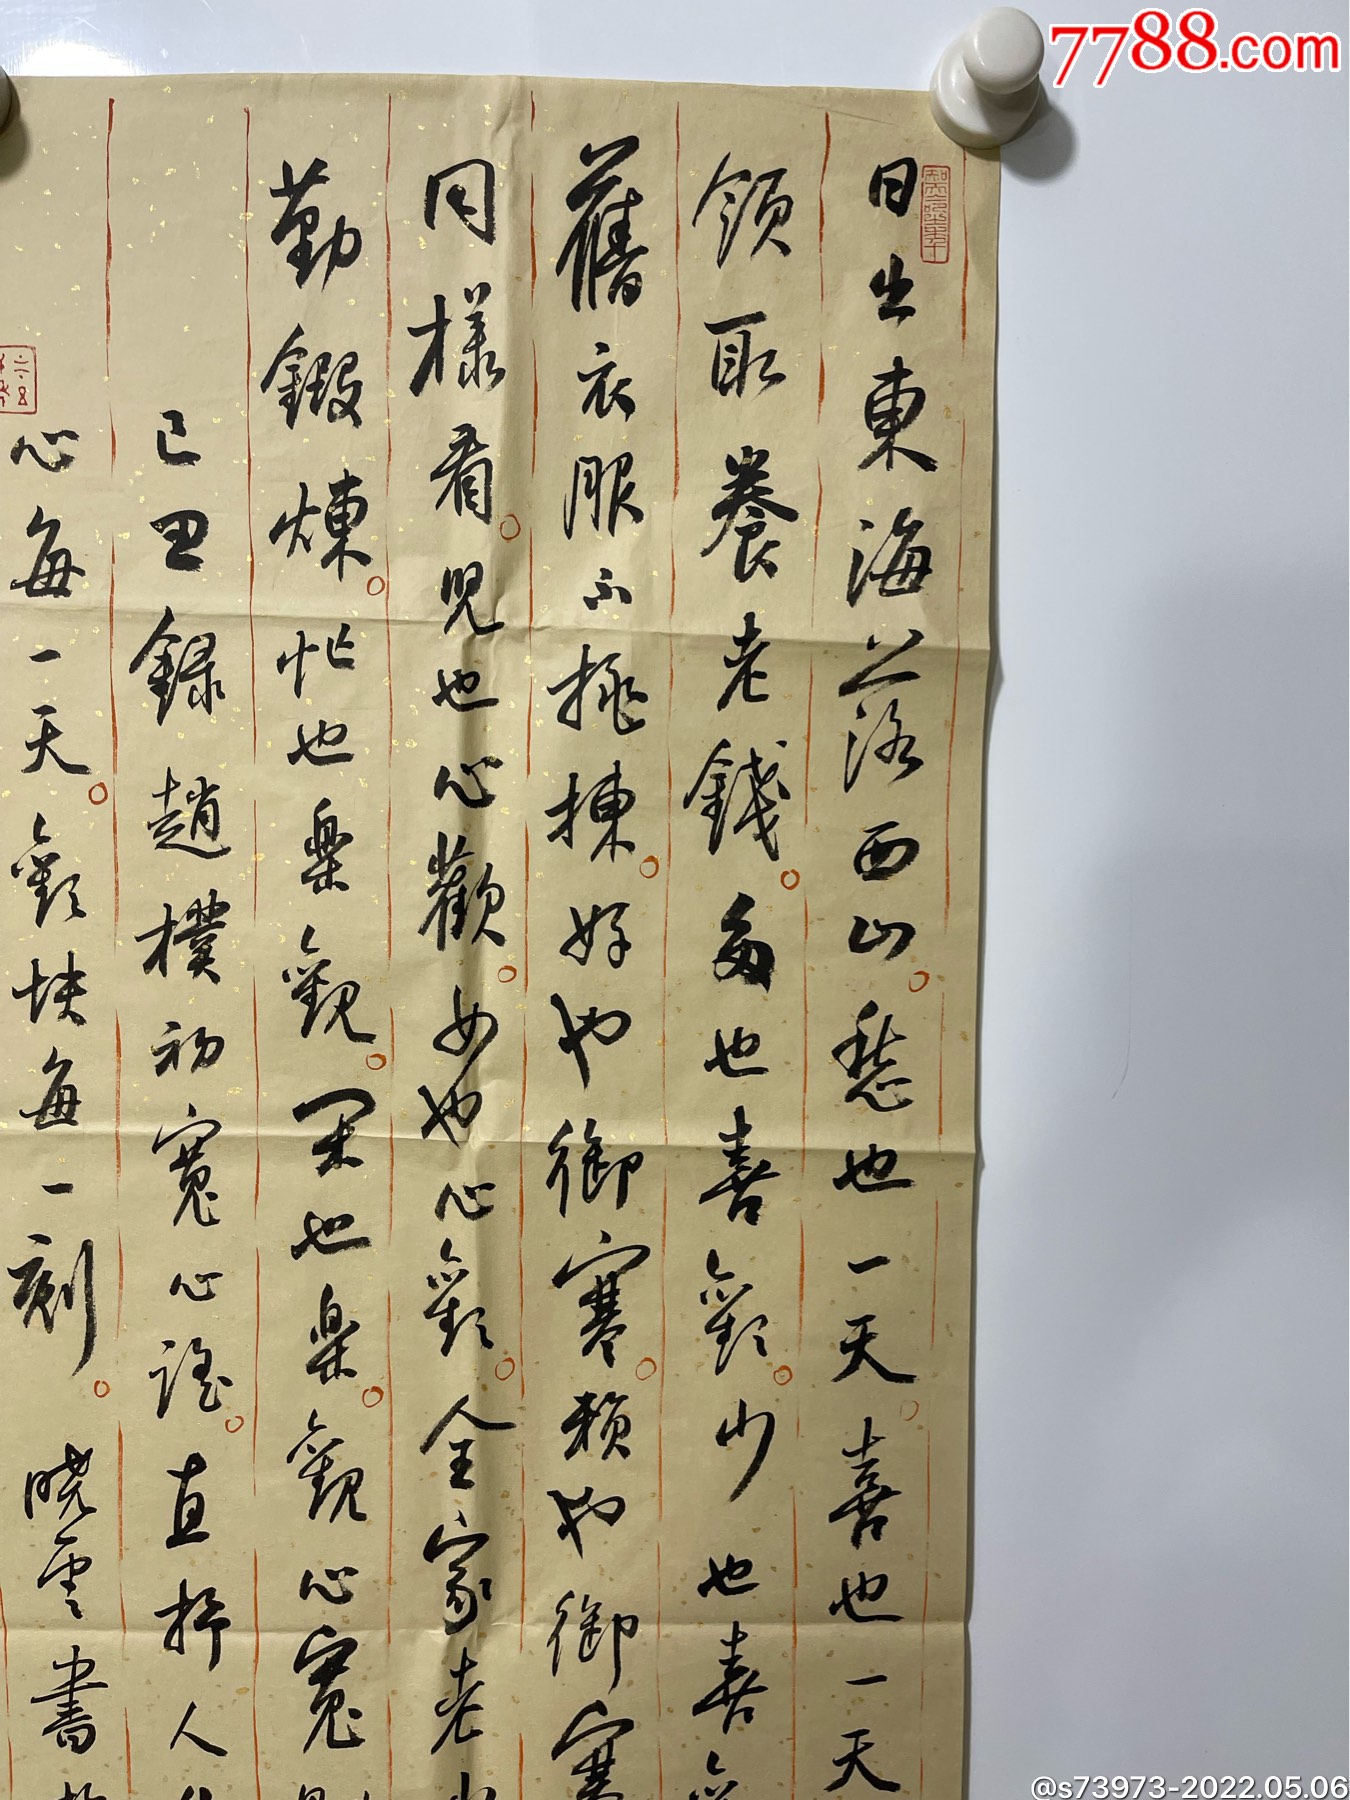 7788.com
日出東海落西山愁也一天喜也一天
領取養老錢多也喜歡少也喜
舊衣服不挑揀好也御寒賴也御寒
同樣看兒也心歡女也心歡全家老
勤鍛煉忙也樂觀閑也樂觀心寬
己丑錄趙樸初寬心謠直抒人
心每一天歡快每一刻 曉雲書於
@s73973-2022.05.06